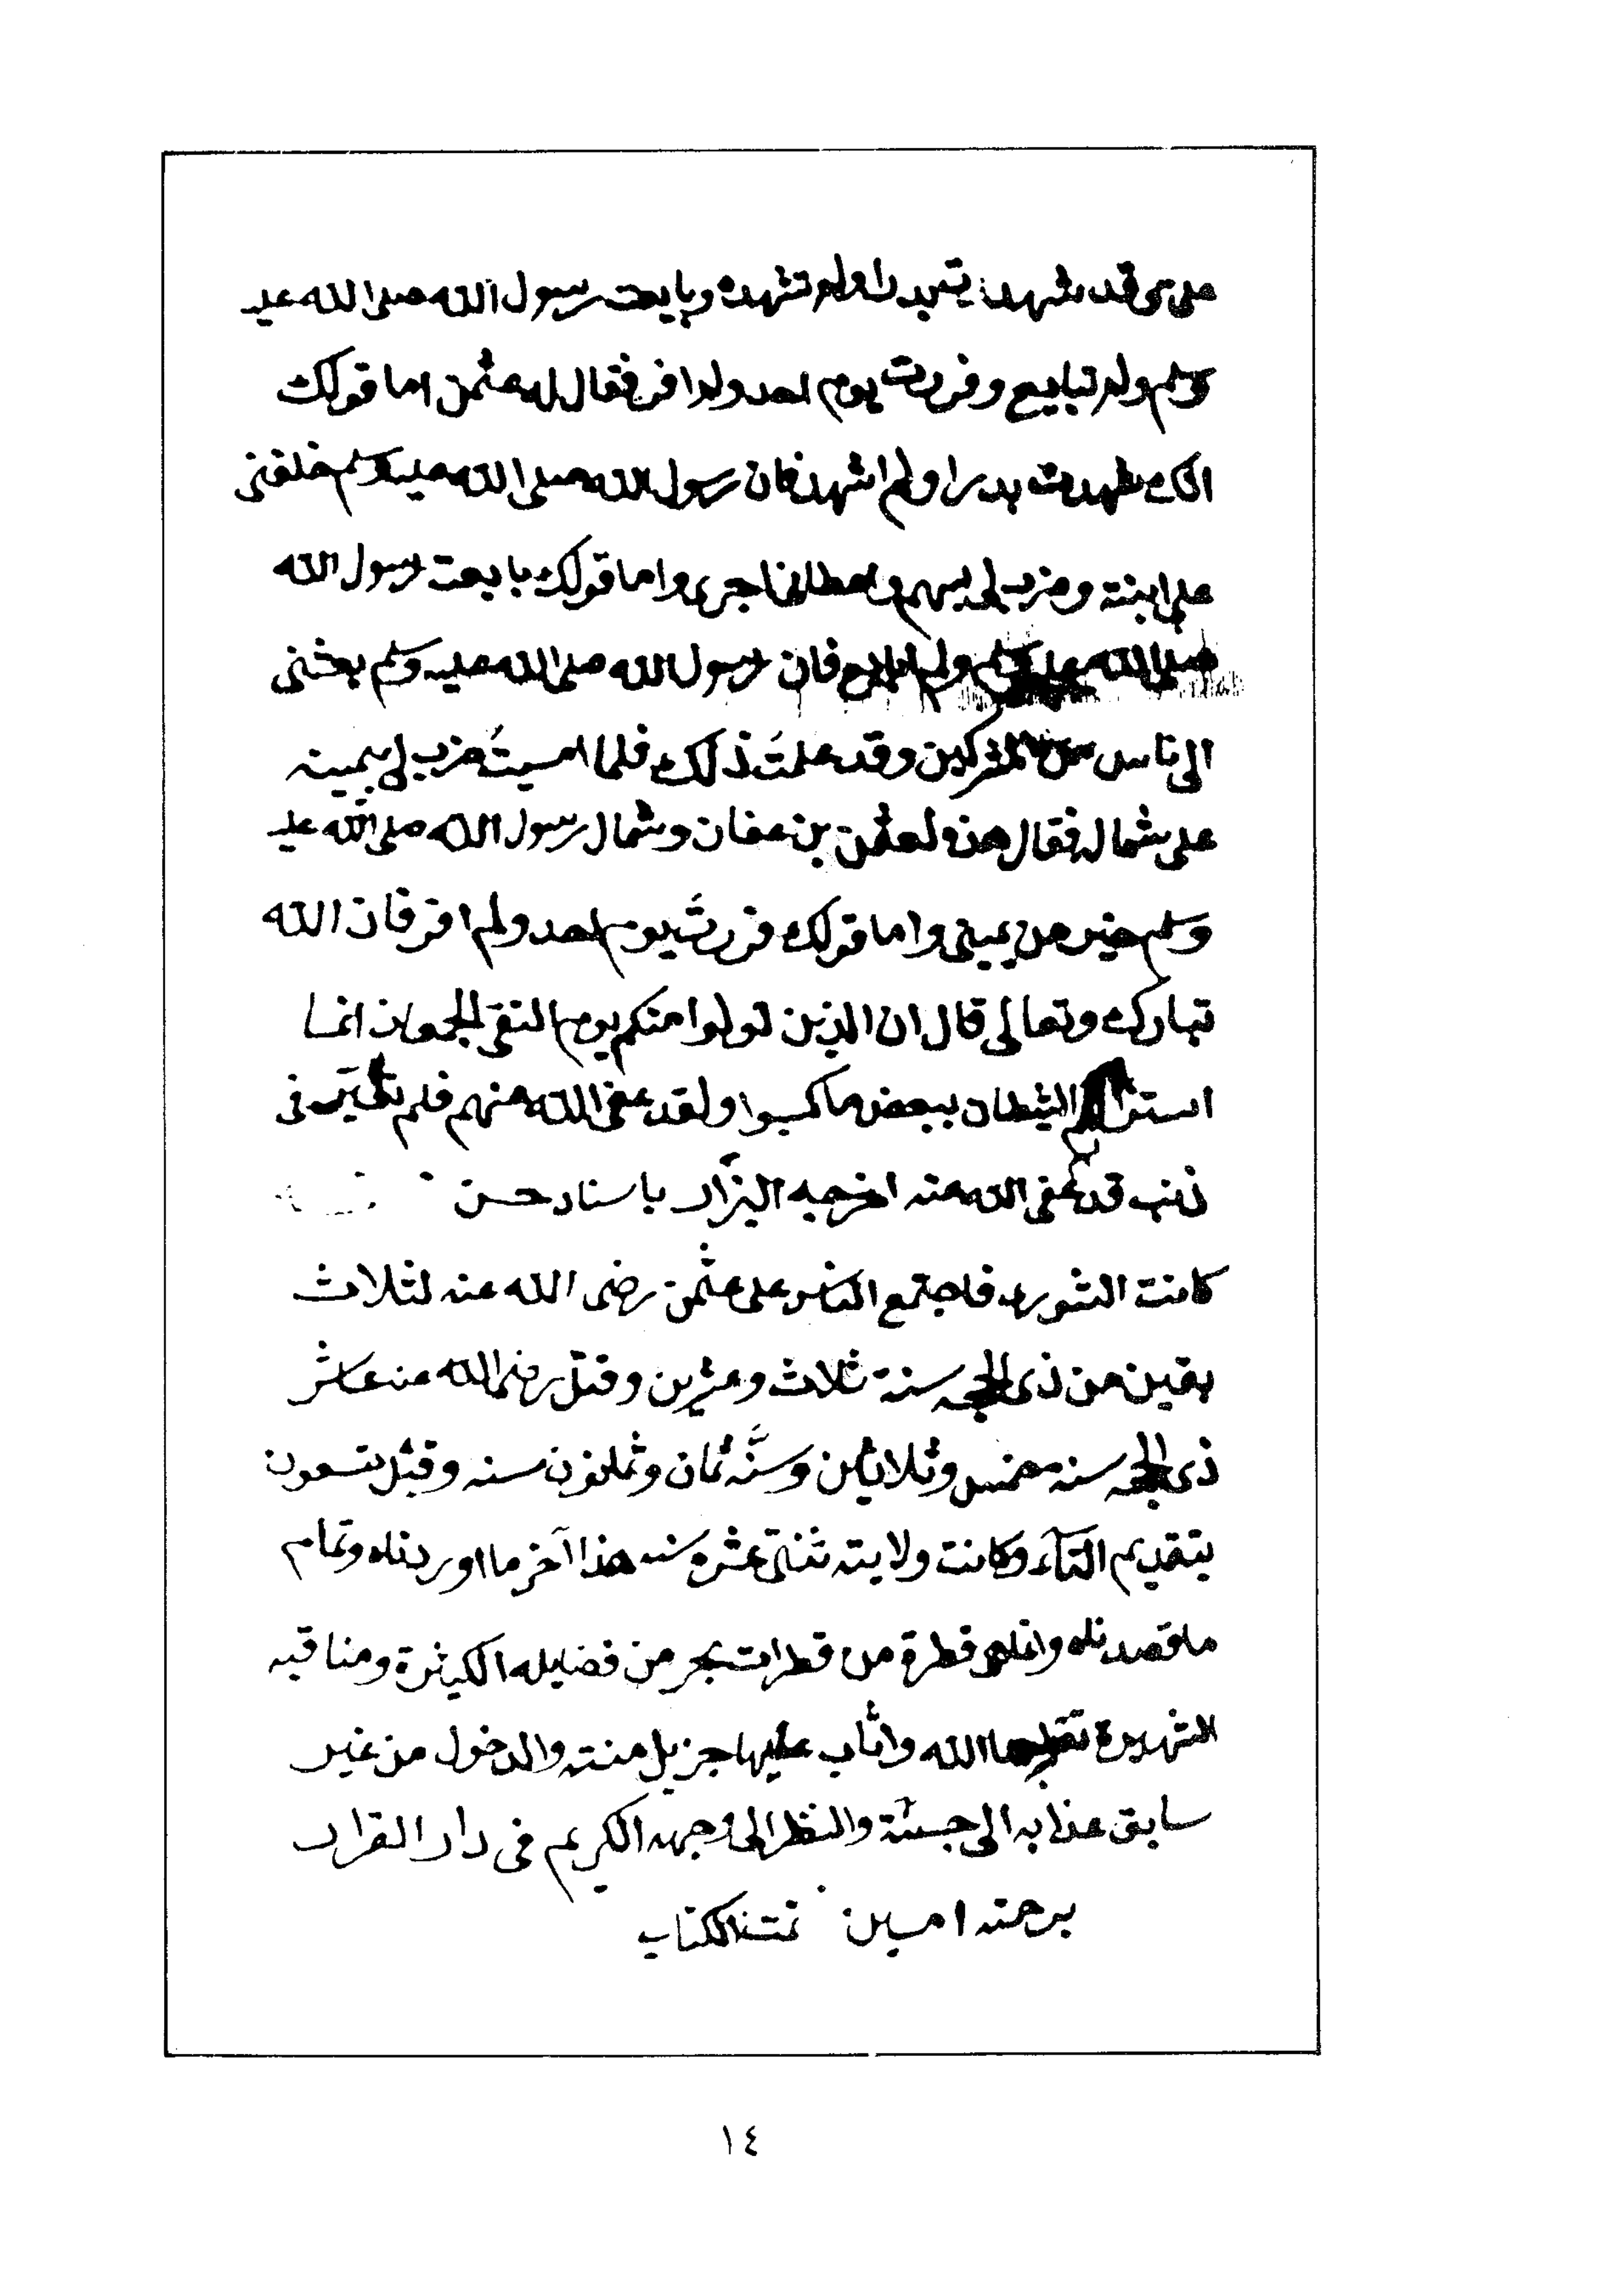 على وقد شهدت بدرا ولم تشهده وبايعت رسول الله صلى الله عليه
وسلم ولم تبايع وفررت يوم احد ولم افر فقال له عثمن اما قولك
انك شهدت بدرا ولم اشهد فان رسول الله صلى الله عليه وسلم خلفنى
على ابنته وضرب لى بسهم واعطانى اجرى واما قولك بايعت رسول الله
صلى الله عليه وسلم ولم ابايع فان رسول الله صلى الله عليه وسلم بعثنى
الى ناس من المشركين وقد علمت ذلك فلما امسيت ضرب لى بيمينه
على شماله فقال هذه لعثمن بن عفان وشمال رسول الله صلى الله عليه
وسلم خير من يمينى واما قولك فررت يوم احد ولم افر فان الله
تبارك وتعالى قال ان الذين تولوا منكم يوم التقى الجمعان انما
استزلهم الشيطان ببعض ما كسبوا ولقد عفى الله عنهم فلم تعيرنى
ذنب قد عفى الله عنه اخرجه البزار باسناد حسن
كانت الشورى فاجتمع الناس على عثمن رضى الله عنه لثلاث
بقين من ذى الحجه سنة ثلاث وعشرين وقتل رضى الله عنه عاشر
ذى الحجه سنة خمس وثلاثين وسنه ثمان وثمانون سنه وقيل تسعون
بتقديم التآء وكانت ولايته ثنتى عشره سنه هذا آخر ما اوردناه وتمام
ما قصدناه وانما هو قطرة من قطرات بحر من فضايله الكثيرة ومناقبه
الشهيرة تقبلها الله واثاب عليها جزيل منته والدخول من غير
سابق عذابه الى جنته والنظر الى وجهه الكريم فى دار القرار
برحمته امين تمت الكتاب
١٤